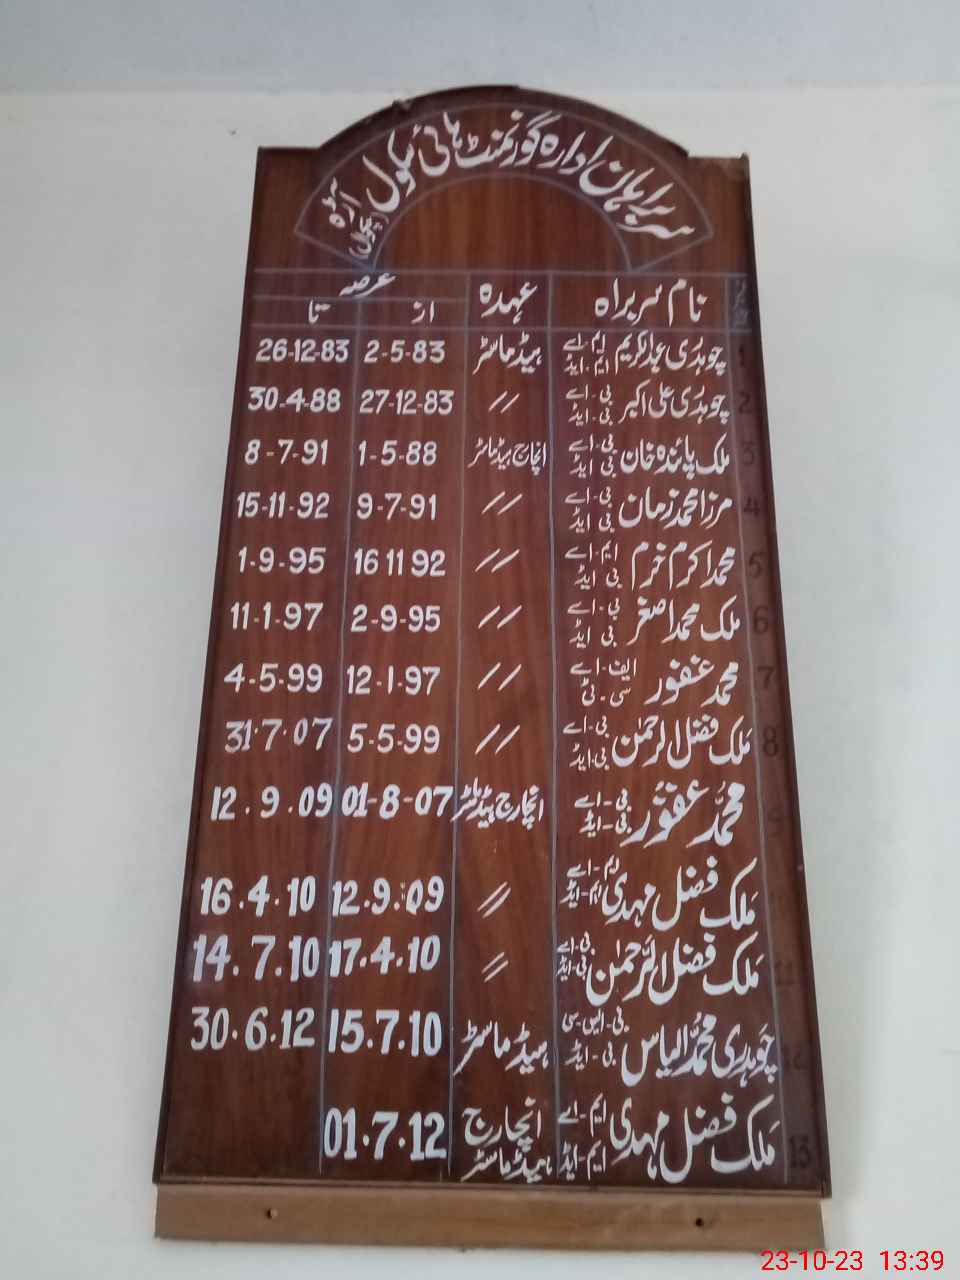 سربراہان ادارہ گورنمنٹ ہائی سکول آڑہ
نام سربراہ عہدہ عرصہ
از تا
1 چوہدری عبدالکریم ایم۔اے ایم۔ایڈ ہیڈ ماسٹر 2-5-83 26-12-83
2 چوہدری علی اکبر بی۔اے بی۔ایڈ // 27-12-83 30-4-88
3 ملک پائندہ خان بی۔اے بی ایڈ انچارج ہیڈماسٹر 1-5-88 8-7-91
4 مرزا محمد زمان بی۔اے بی ایڈ // 9-7-91 15-11-92
5 محمد اکرم خرم ایم۔اے بی ایڈ // 16 11 92 1-9-95
6 ملک محمد اصغر بی۔اے بی ایڈ // 2-9-95 11-1-97
7 محمد غفور ایف۔اے سی۔ٹی // 12-1-97 4-5-99
8 ملک فضل الرحمٰن بی۔اے بی۔ایڈ // 5-5-99 31.7.07
9 محمد غفور بی۔اے بی۔ایڈ انچارج ہیڈماسٹر 01-8-07 12.9.09
ملک فضل مہدی ایم۔اے ایم۔ایڈ // 12.9.09 16.4.10
11 ملک فضل الرحمٰن بی۔اے بی۔ایڈ // 17.4.10 14.7.10
12 چوہدری محمد الیاس بی۔ایس۔سی بی۔ایڈ ہیڈ ماسٹر 15.7.10 30.6.12
13 ملک فضل مہدی ایم۔اے ایم۔ایڈ انچارج ہیڈ ماسٹر 01.7.12
23-10-23 13:39